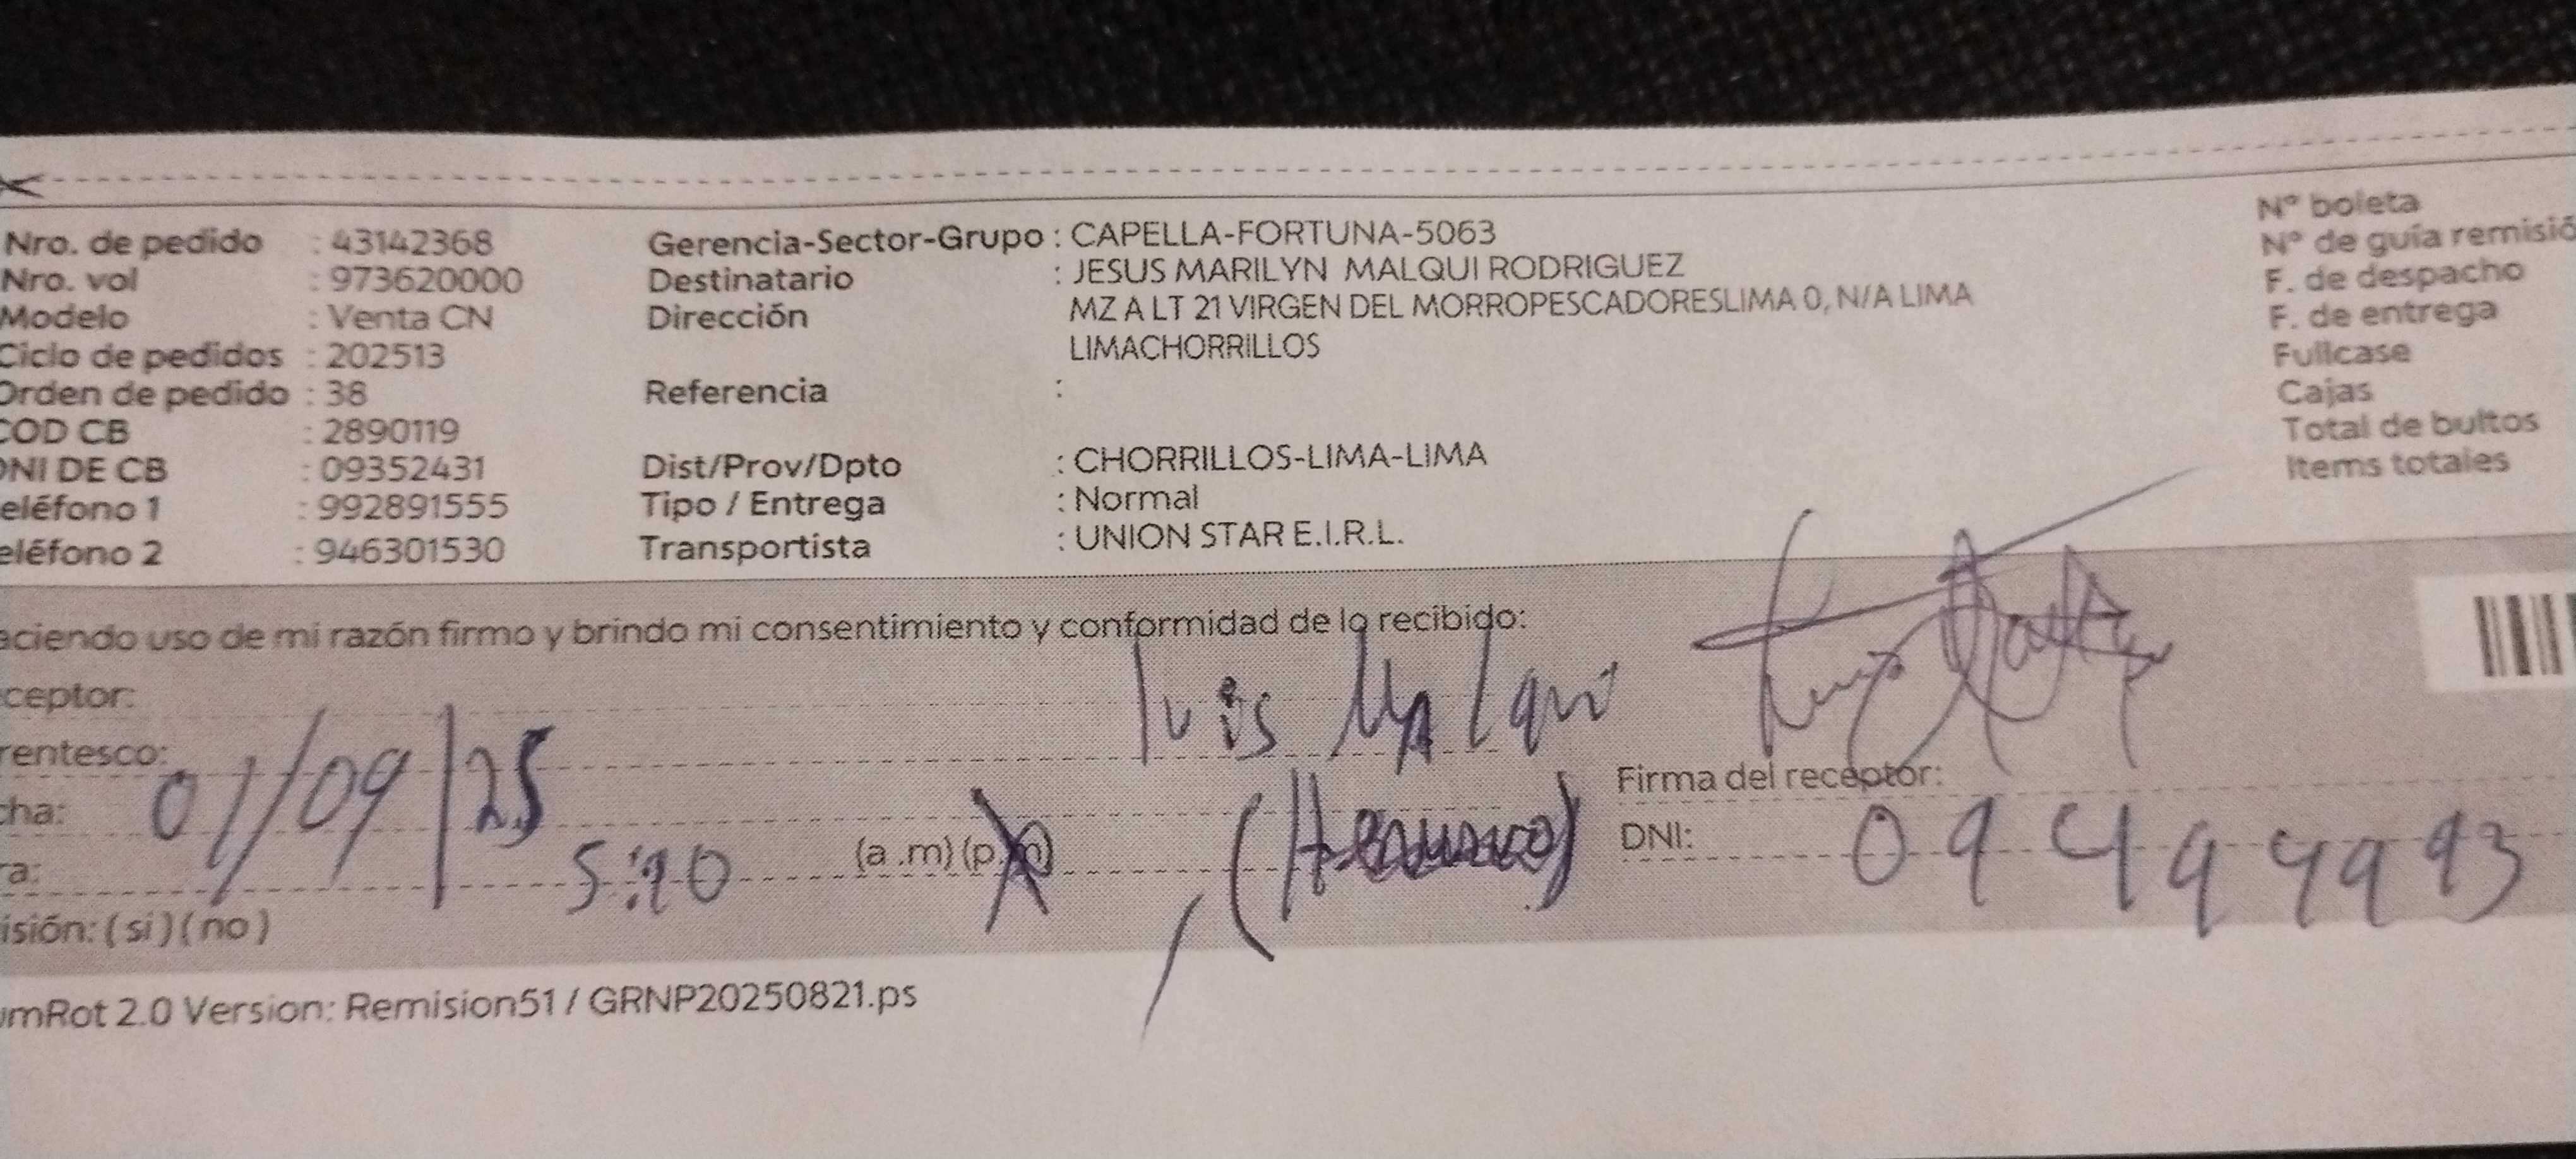 Nro. de pedido : 43142368 Gerencia-Sector-Grupo : CAPELLA-FORTUNA-5063 N° boleta
Nro. vol : 973620000 Destinatario : JESUS MARILYN MALQUI RODRIGUEZ N° de guía remisió
Modelo : Venta CN Dirección MZ A LT 21 VIRGEN DEL MORROPESCADORESLIMA 0, N/A LIMA F. de despacho
LIMACHORRILLOS F. de entrega
Ciclo de pedidos : 202513 Fullcase
Orden de pedido : 38 Referencia : Cajas
COD CB : 2890119 Total de bultos
DNI DE CB : 09352431 Dist/Prov/Dpto : CHORRILLOS-LIMA-LIMA Items totales
eléfono 1 : 992891555 Tipo / Entrega : Normal
eléfono 2 : 946301530 Transportista : UNION STAR E.I.R.L.
aciendo uso de mi razón firmo y brindo mi consentimiento y conformidad de lo recibido:
ceptor: luis Malqui
rentesco: (Hermano) Firma del receptor:
cha: 01/09/25 DNI: 09449993
ra: 5:10 (a .m) (p.m)
isión: ( si ) ( no )
umRot 2.0 Version: Remision51 / GRNP20250821.ps